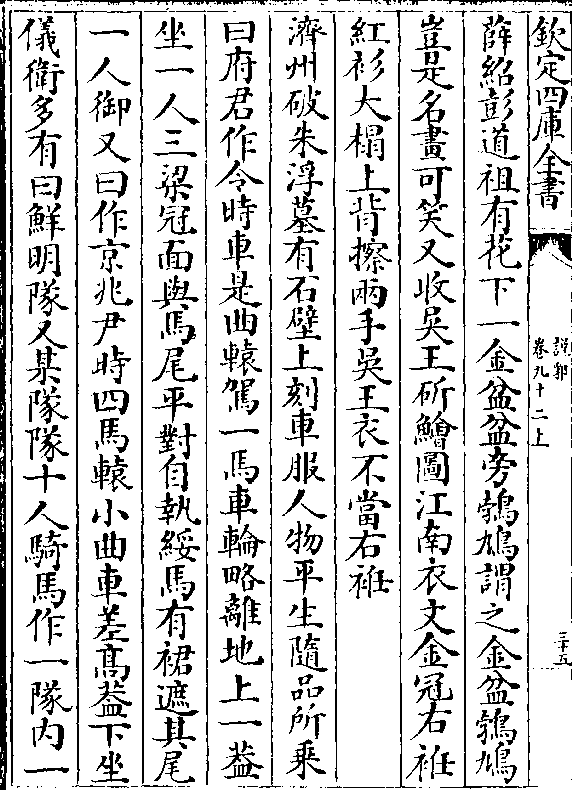 欽定四庫全書
説郛
卷九十二上
二十五
薛紹彭道祖有花下一金盆盆旁鵓鳩謂之金盆鵓鳩
豈是名畫可笑又收吳王斫鱠圖江南衣文金冠右袵
紅衫大榻上背擦兩手吳王衣不當右袵
濟州破朱浮墓有石壁上刻車服人物平生隨品所乘
曰府君作令時車是曲轅駕一馬車輪略離地上一葢
坐一人三梁冠面與馬尾平對自執綏馬有裙遮其尾
一人御又曰作京兆尹時四馬轅小曲車差髙葢下坐
儀衛多有曰鮮明隊又某隊隊十人騎馬作一隊内一